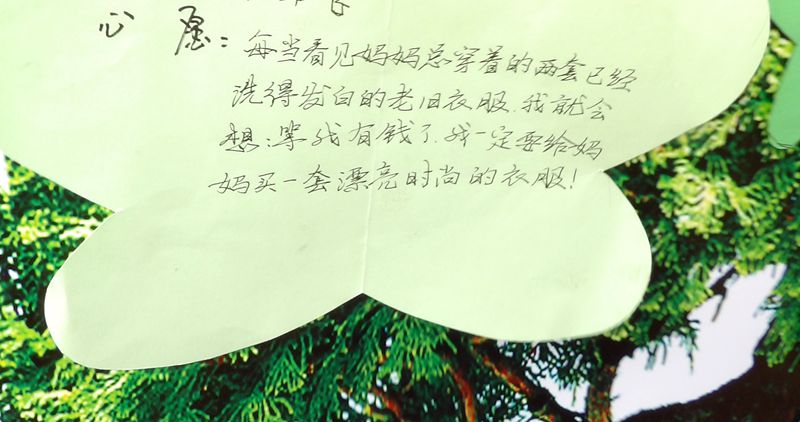 心 愿：每当看见妈妈总穿着的两套已经
洗得发白的老旧衣服，我就会
想：等我有钱了，我一定要给妈
妈买一套漂亮时尚的衣服！